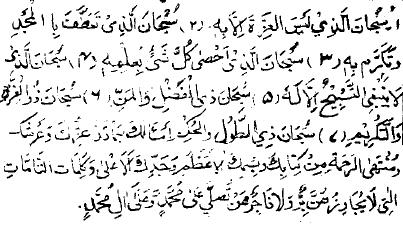 ١ سبحان الذي لبس العزة الا به (٢) سبحان الذي تعطف با المجد
وتكرم به (٣) سبحان الذي احصى كل شئ بعلمه (٤) سبحان الذي
لا ينبغي التسبيح الا له (٥) سبحان ذي الفضل والمن (٦) سبحان ذو العزة
والتكريم (٧) سبحان ذي الطول و اسالك وعرشك
ومنتهى الرحمة من كتابك الاعظم وجدك الاعلى وكلمات التامات
التي لا يجاوزهن بر ولا فاجر من تصلي على محمد وعلى ال محمد